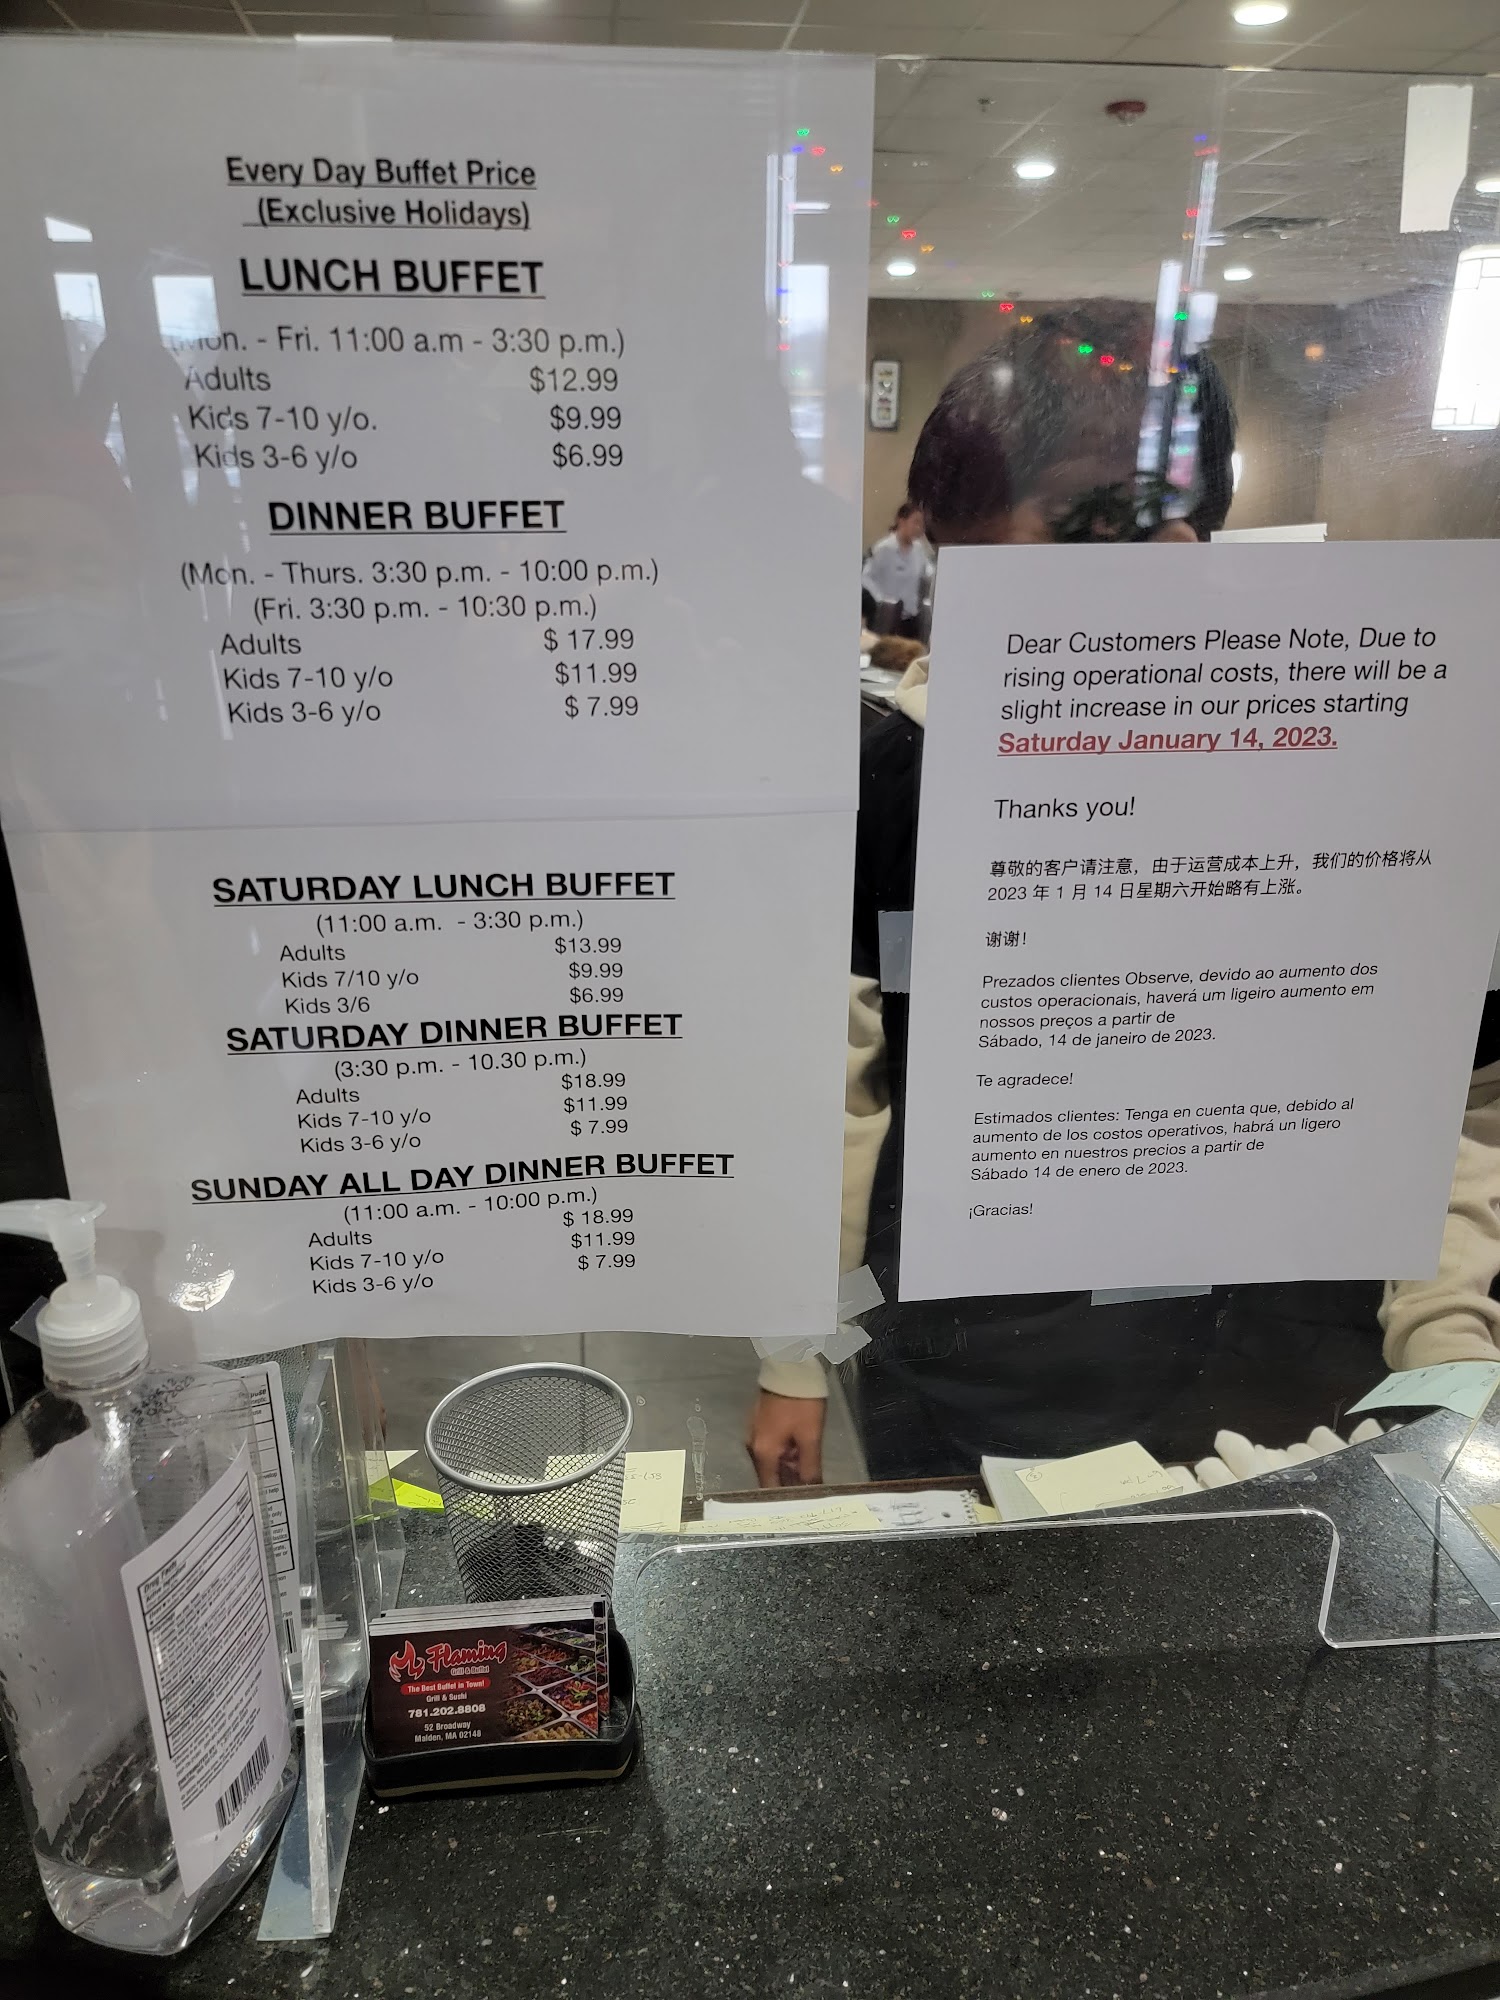 Every Day Buffet Price
(Exclusive Holidays)
LUNCH BUFFET
(Mon. - Fri. 11:00 a.m - 3:30 p.m.)
Adults $12.99
Kids 7-10 y/o. $9.99
Kids 3-6 y/o $6.99
DINNER BUFFET
(Mon. - Thurs. 3:30 p.m. - 10:00 p.m.)
(Fri. 3:30 p.m. - 10:30 p.m.)
Adults $ 17.99
Kids 7-10 y/o $11.99
Kids 3-6 y/o $ 7.99
SATURDAY LUNCH BUFFET
(11:00 a.m. - 3:30 p.m.)
Adults $13.99
Kids 7/10 y/o $9.99
Kids 3/6 $6.99
SATURDAY DINNER BUFFET
(3:30 p.m. - 10.30 p.m.)
Adults $18.99
Kids 7-10 y/o $11.99
Kids 3-6 y/o $ 7.99
SUNDAY ALL DAY DINNER BUFFET
(11:00 a.m. - 10:00 p.m.)
Adults $ 18.99
Kids 7-10 y/o $11.99
Kids 3-6 y/o $ 7.99
Dear Customers Please Note, Due to
rising operational costs, there will be a
slight increase in our prices starting
Saturday January 14, 2023.
Thanks you!
尊敬的客户请注意，由于运营成本上升，我们的价格将从
2023 年 1 月 14 日星期六开始略有上涨。
谢谢！
Prezados clientes Observe, devido ao aumento dos
custos operacionais, haverá um ligeiro aumento em
nossos preços a partir de
Sábado, 14 de janeiro de 2023.
Te agradece!
Estimados clientes: Tenga en cuenta que, debido al
aumento de los costos operativos, habrá un ligero
aumento en nuestros precios a partir de
Sábado 14 de enero de 2023.
¡Gracias!
Flaming
Grill & Buffet
The Best Buffet in Town!
Grill & Sushi
781.202.8808
52 Broadway
Malden, MA 02148
Drug Facts